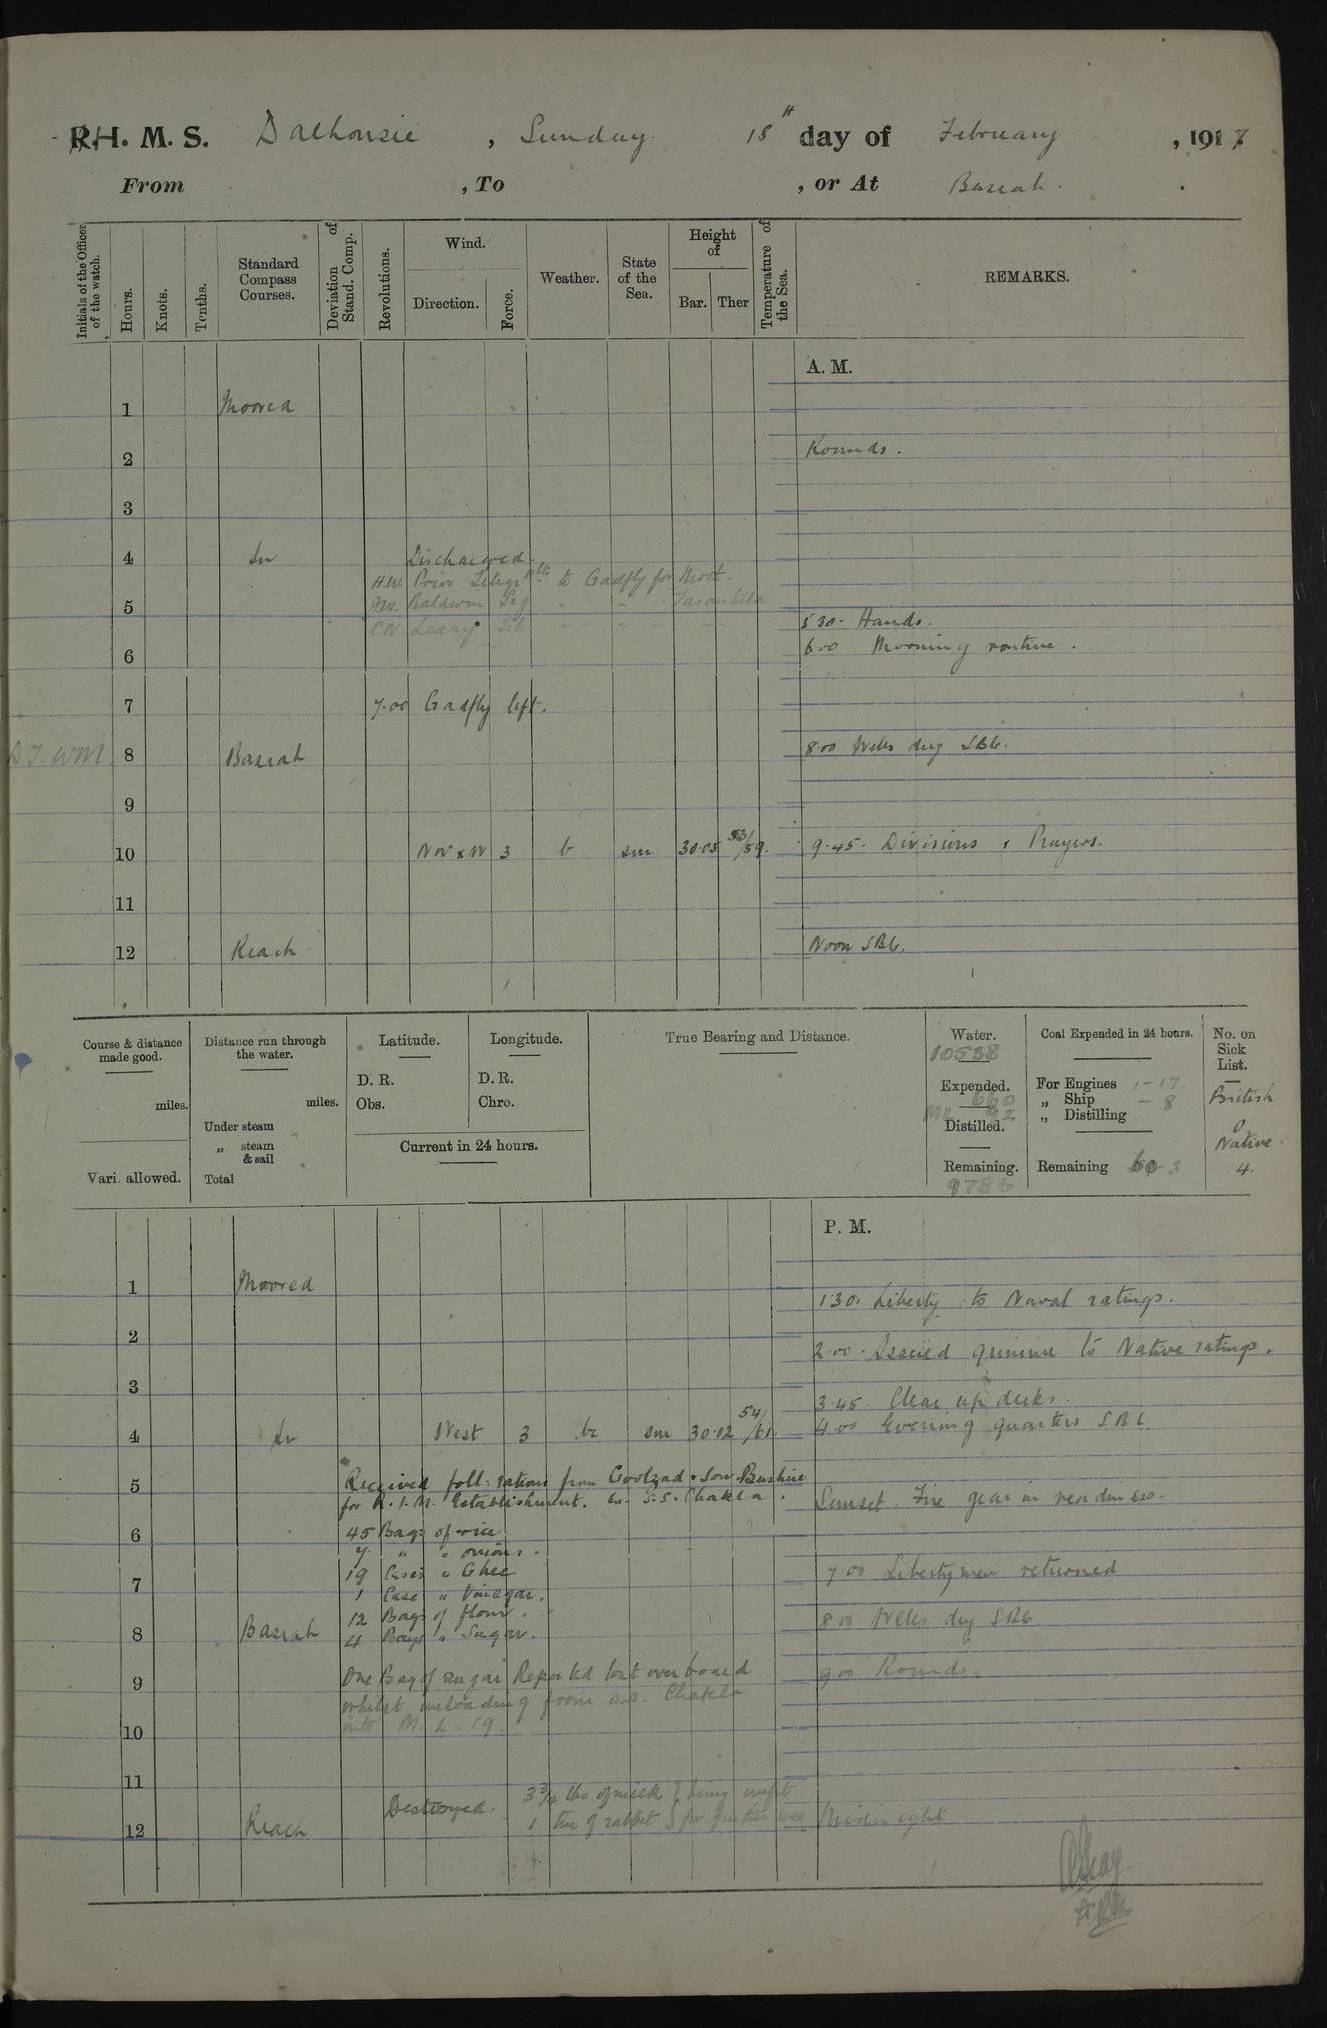 R.H. M. S. Dalhousie, Sunday 18th day of February, 1917
From , To , or At Basrah.
Initials of the Officer of the watch.
Hours.
Knots.
Tenths.
Standard Compass Courses.
Deviation of Stand. Comp.
Revolutions.
Wind.
Direction.
Force.
Weather.
State of the Sea.
Height of
Bar.
Ther
Temperature of the Sea.
REMARKS.
A. M.
1 Moored
2 Rounds.
3
4 in Discharged
H.W. Prior to Gadfly for Moot.
Baldwin Sig " " Tarantula
5
C.W. Leary Tel " " " "
5 30. Hands.
6 6 00 Morning routine.
7 7.00 Gadfly left.
8 Basrah 8.00 Weles dug SBL.
9
10 NW x W 3 b sm 30.05 53/59. 9.45. Divisions & Prayers.
11
12 Reach Noon SBL.
Course & distance made good.
miles.
Vari. allowed.
Distance run through the water.
miles.
Under steam
" steam & sail
Total
Latitude.
D. R.
Obs.
Longitude.
D. R.
Chro.
Current in 24 hours.
True Bearing and Distance.
Water.
10538
Expended.
660
92
Distilled.
Remaining.
9786
Coal Expended in 24 hours.
For Engines 1-17
" Ship - 8
" Distilling
Remaining
No. on Sick List.
British
0
Native.
4.
P. M.
1 Moored
1.30. Liberty to Naval ratings.
2
2.00. Issued quinine to Native ratings.
3
3.45. Clear up decks.
4 in West 3 bc sm 30.12 54/61. 4.00 Evening quarters SBL
5 Received foll: rations from Goolzad & Son Bushire
for R.I.M. Establishment. Ex S.S. Chakla.
Sunset. Fire gear in readiness.
6 45 Bags of rice
7. " " onions.
19 Cases " Ghee
7 7 00 Libertymen returned
1 Case " Vinegar.
12 Bags of flour.
8 Basrah 4 Bags " Sugar. 8 00 Weles dug SBL
9 One Bag of sugar Reported lost overboard 9 00 Rounds.
whilst unloading from s.s. Chakla
10 into M. L. 19.
11
3 3/4 lbs of milk } being unfit
Destroyed.
1 tin of rabbit } for further use
12 Reach Midnight